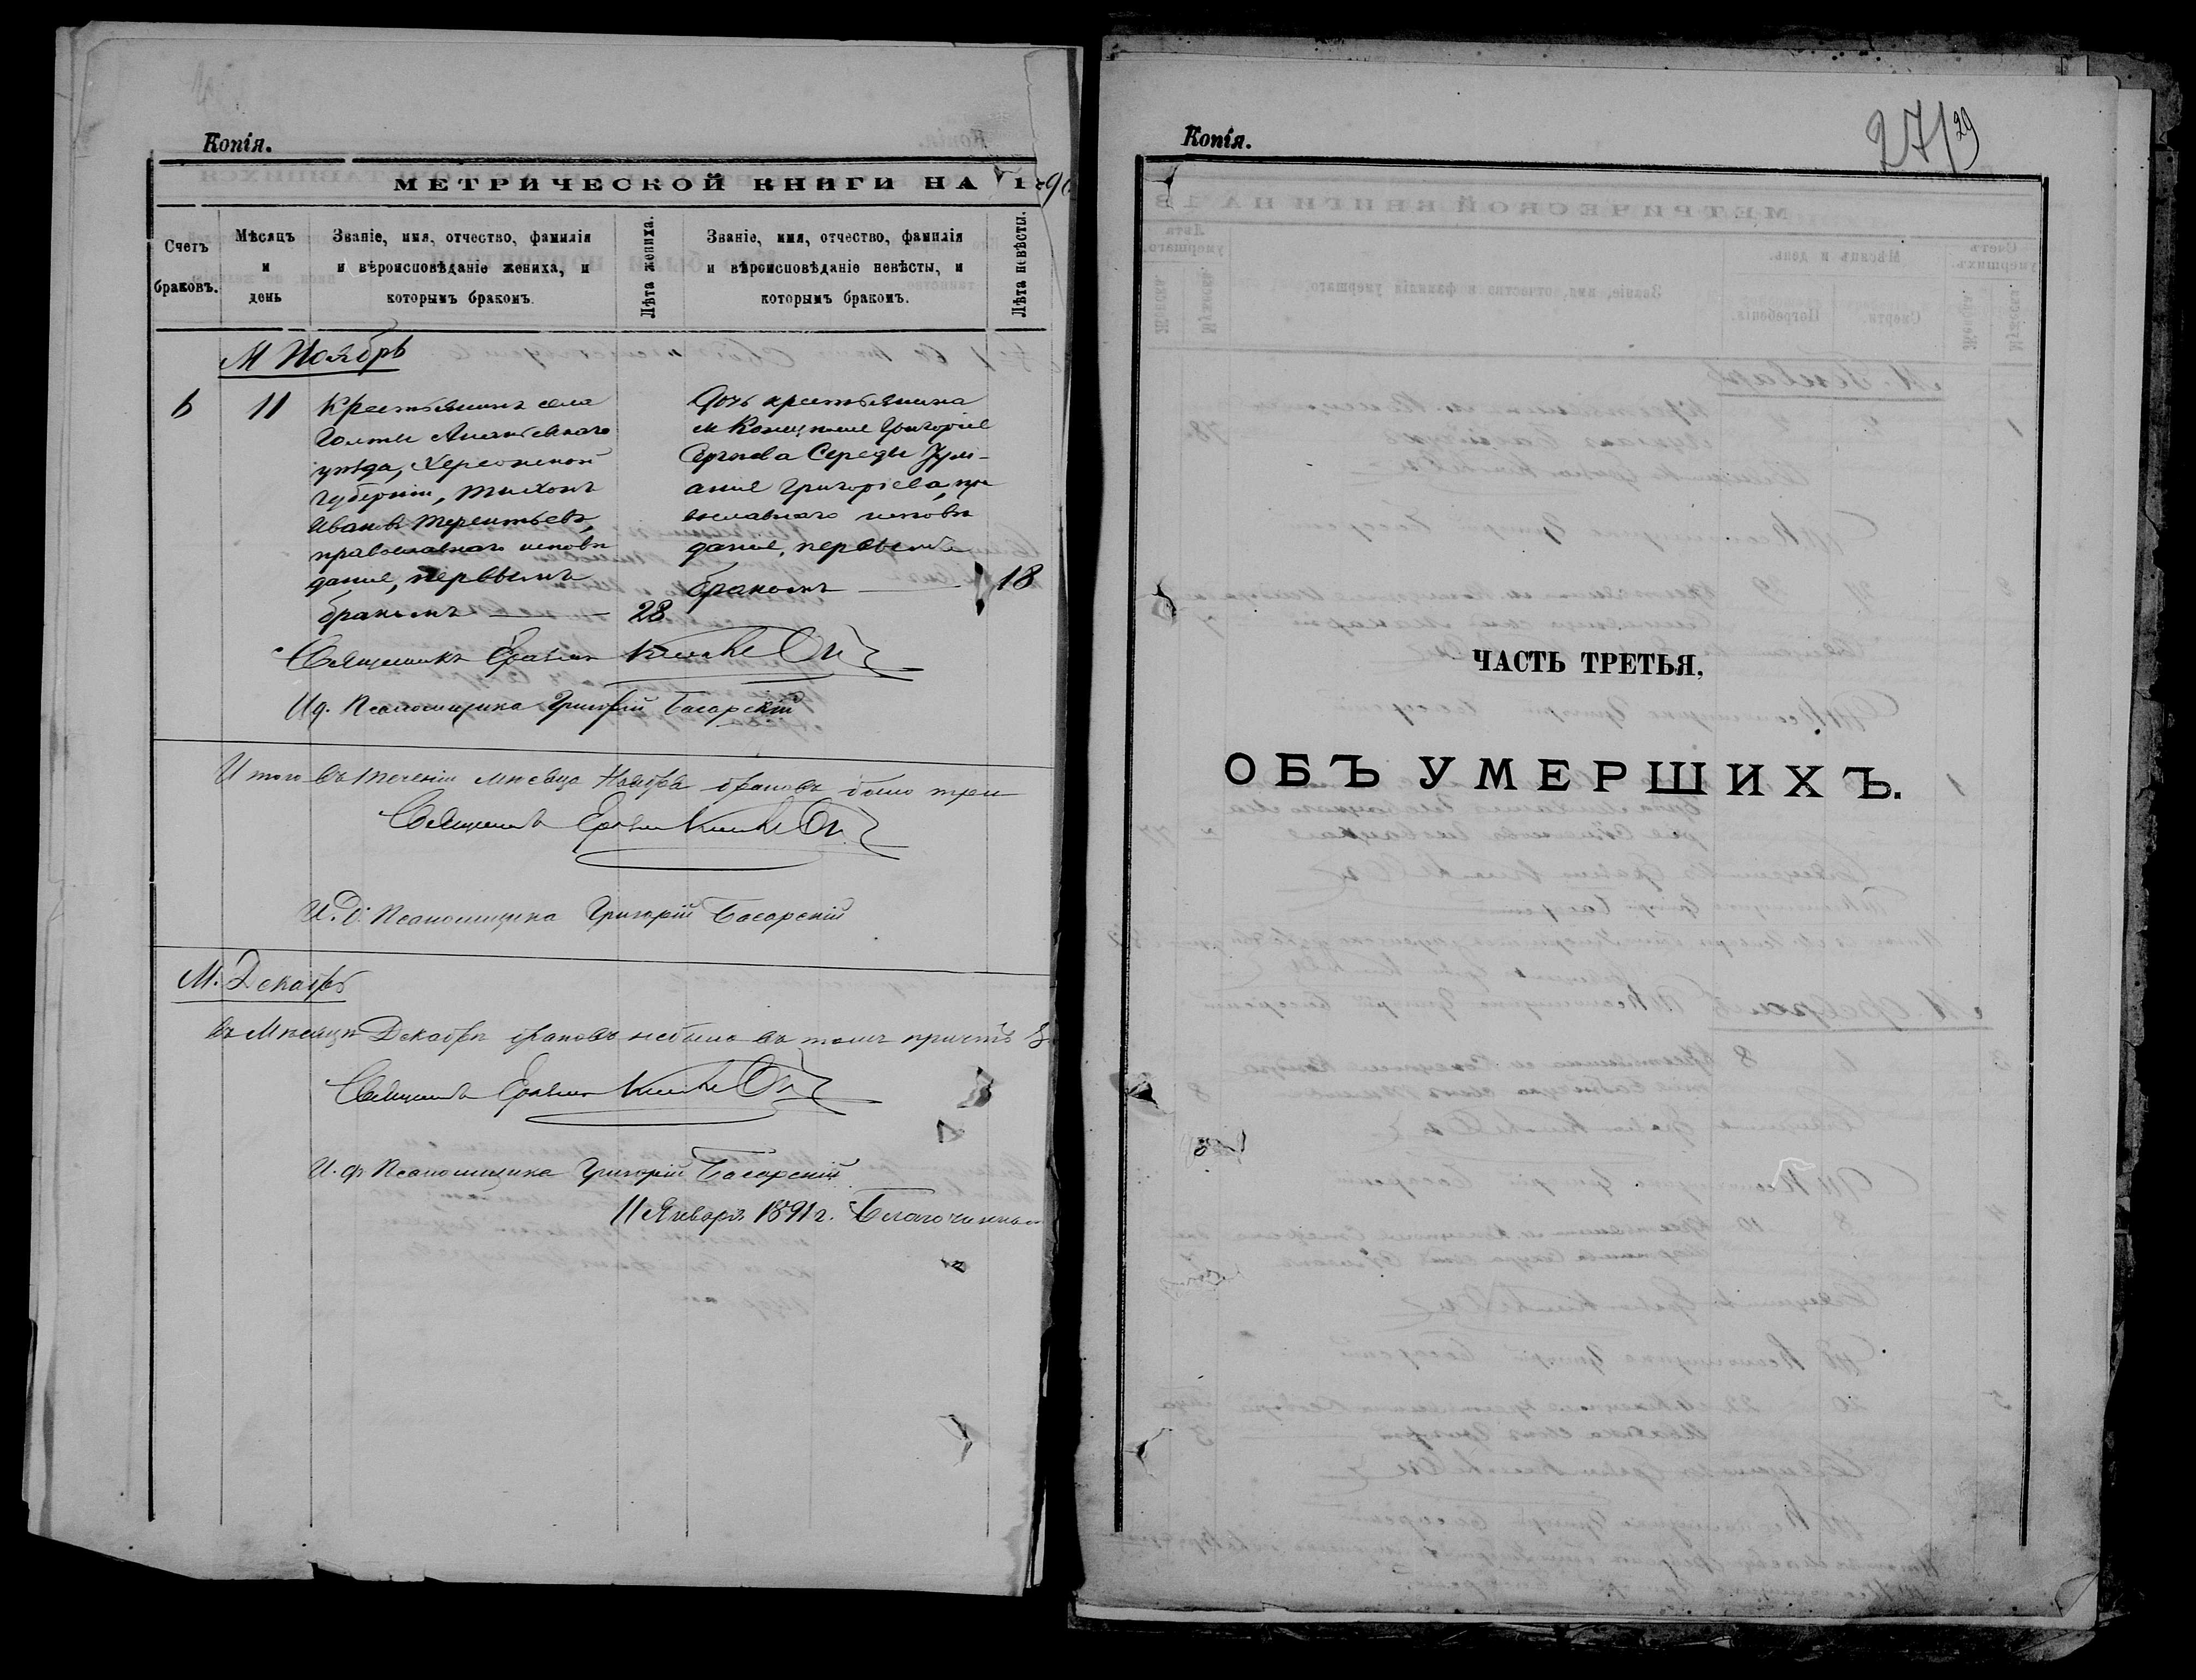 Копія.
МЕТРИЧЕСКОЙ КНИГИ НА 1890
Счетъ браковъ.
Мѣсяцъ и день
Званіе, имя, отчество, фамилія и вѣроисповѣданіе жениха, и которымъ бракомъ.
Лѣта жениха.
Званіе, имя, отчество, фамилія и вѣроисповѣданіе невѣсты, и которымъ бракомъ.
Лѣта невѣсты.
М Ноябрь
6 11
Крестьянинъ села
Голты Ананьевскаго
уѣзда, Херсонской
губерніи, Тихонъ
Ивановъ Терентьевъ,
православнаго исповѣ
данія, первымъ
бракомъ 28
Дочь крестьянина
м Конецполя Григорія
Середы Іулі-
анія Григоріева, пра
вославнаго исповѣ
данія, первымъ
бракомъ 18
Священникъ
И д. Псаломщика Григорій Басарскій
Итого въ теченіи мѣсяца Ноября браковъ было три
Священникъ
И. Д. Псаломщика Григорій Басарскій
М. Декабрь
въ Мѣсяцѣ Декабрѣ браковъ небыло въ томъ причтъ
Священникъ
И. д Псаломщика Григорій Басарскій
11 Января 1891 г. Благочинный
Копія.
27/29
ЧАСТЬ ТРЕТЬЯ,
ОБЪ УМЕРШИХЪ.